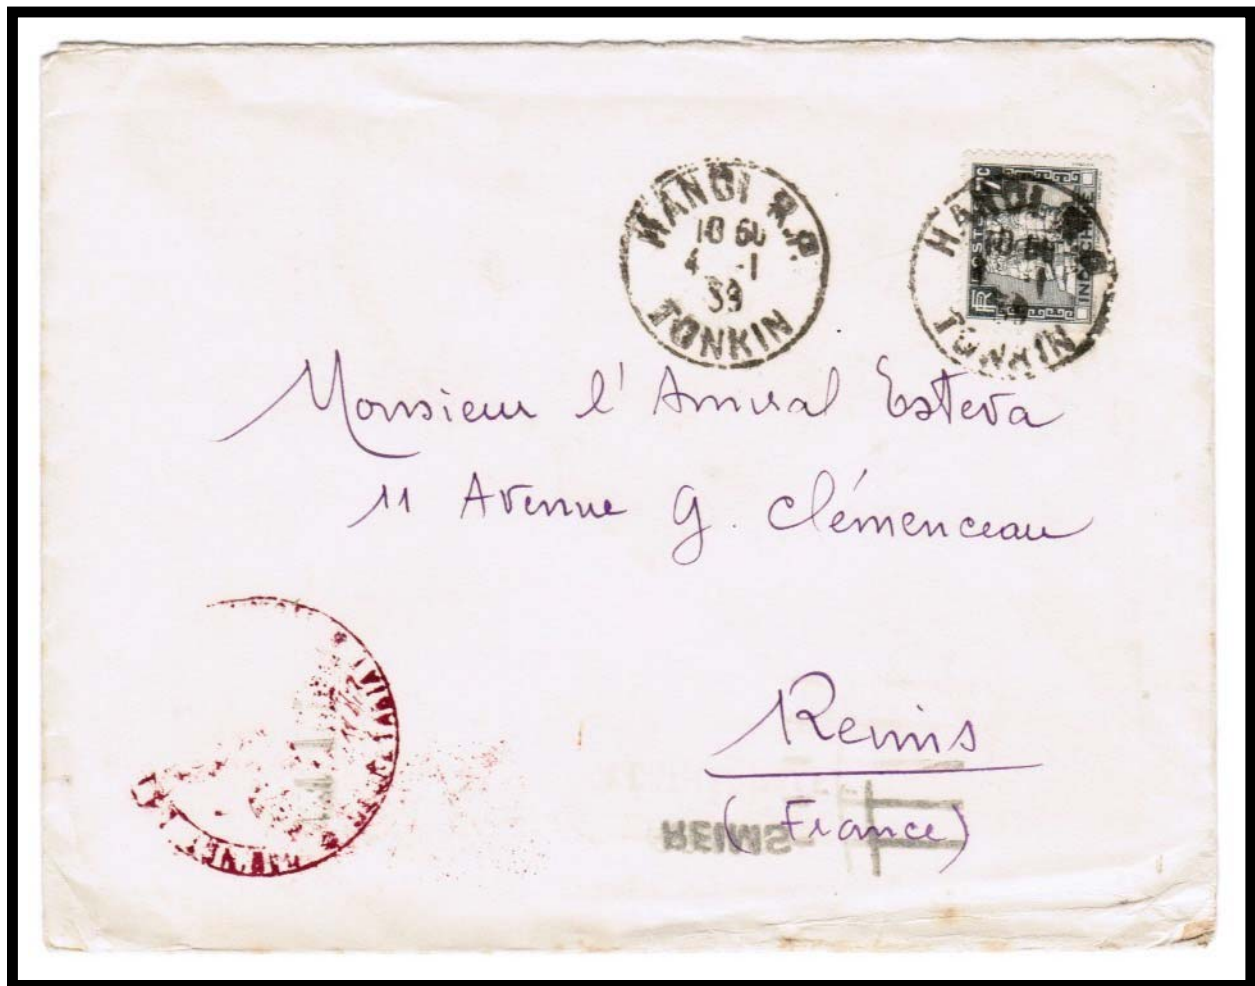 HANOI R.P.
10 60
4 -1
39
TONKIN
HANOI
10
TONKIN
7c
POSTES
INDOCHINE
RF
Monsieur l'Amiral Esteva
11 Avenue G. Clémenceau
Reims
(France)
REIMS